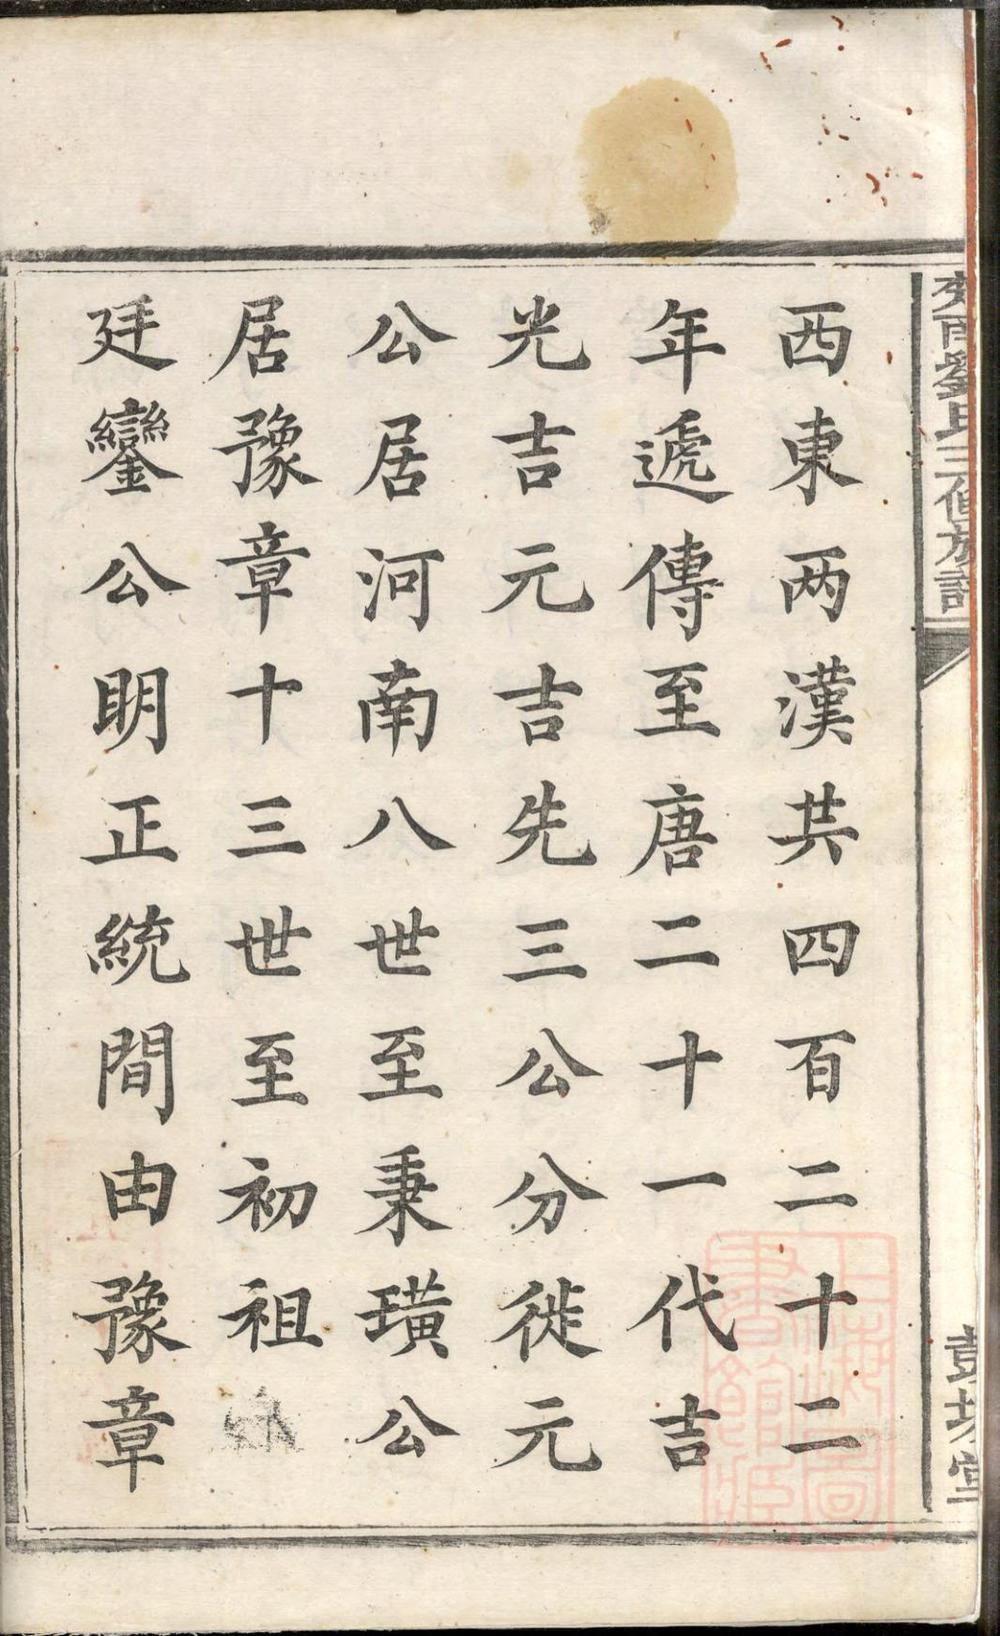 西東两漢共四百二十二
年遞傳至唐二十一代吉
光吉元吉先三公分徙元
公居河南八世至秉璜公
居豫章十三世至初祖
廷鑾公明正統間由豫章
劉氏三修族譜
堂
上海圖書館藏